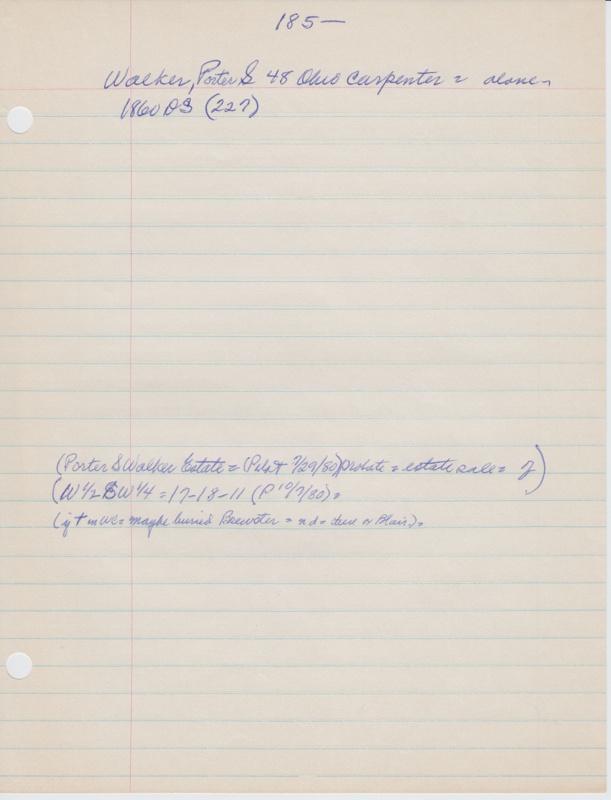 185—
Walker, Porter S 48 Ohio Carpenter = alone
1860 DS (227)
(Porter S Walker Estate = (Pilot 7/29/80) probate = estate sale =
(W 1/2 SW 1/4 = 17-18-11 (P 10/7/80) =
(if + in WC = maybe buried Brewster = nd = here or Blair) =